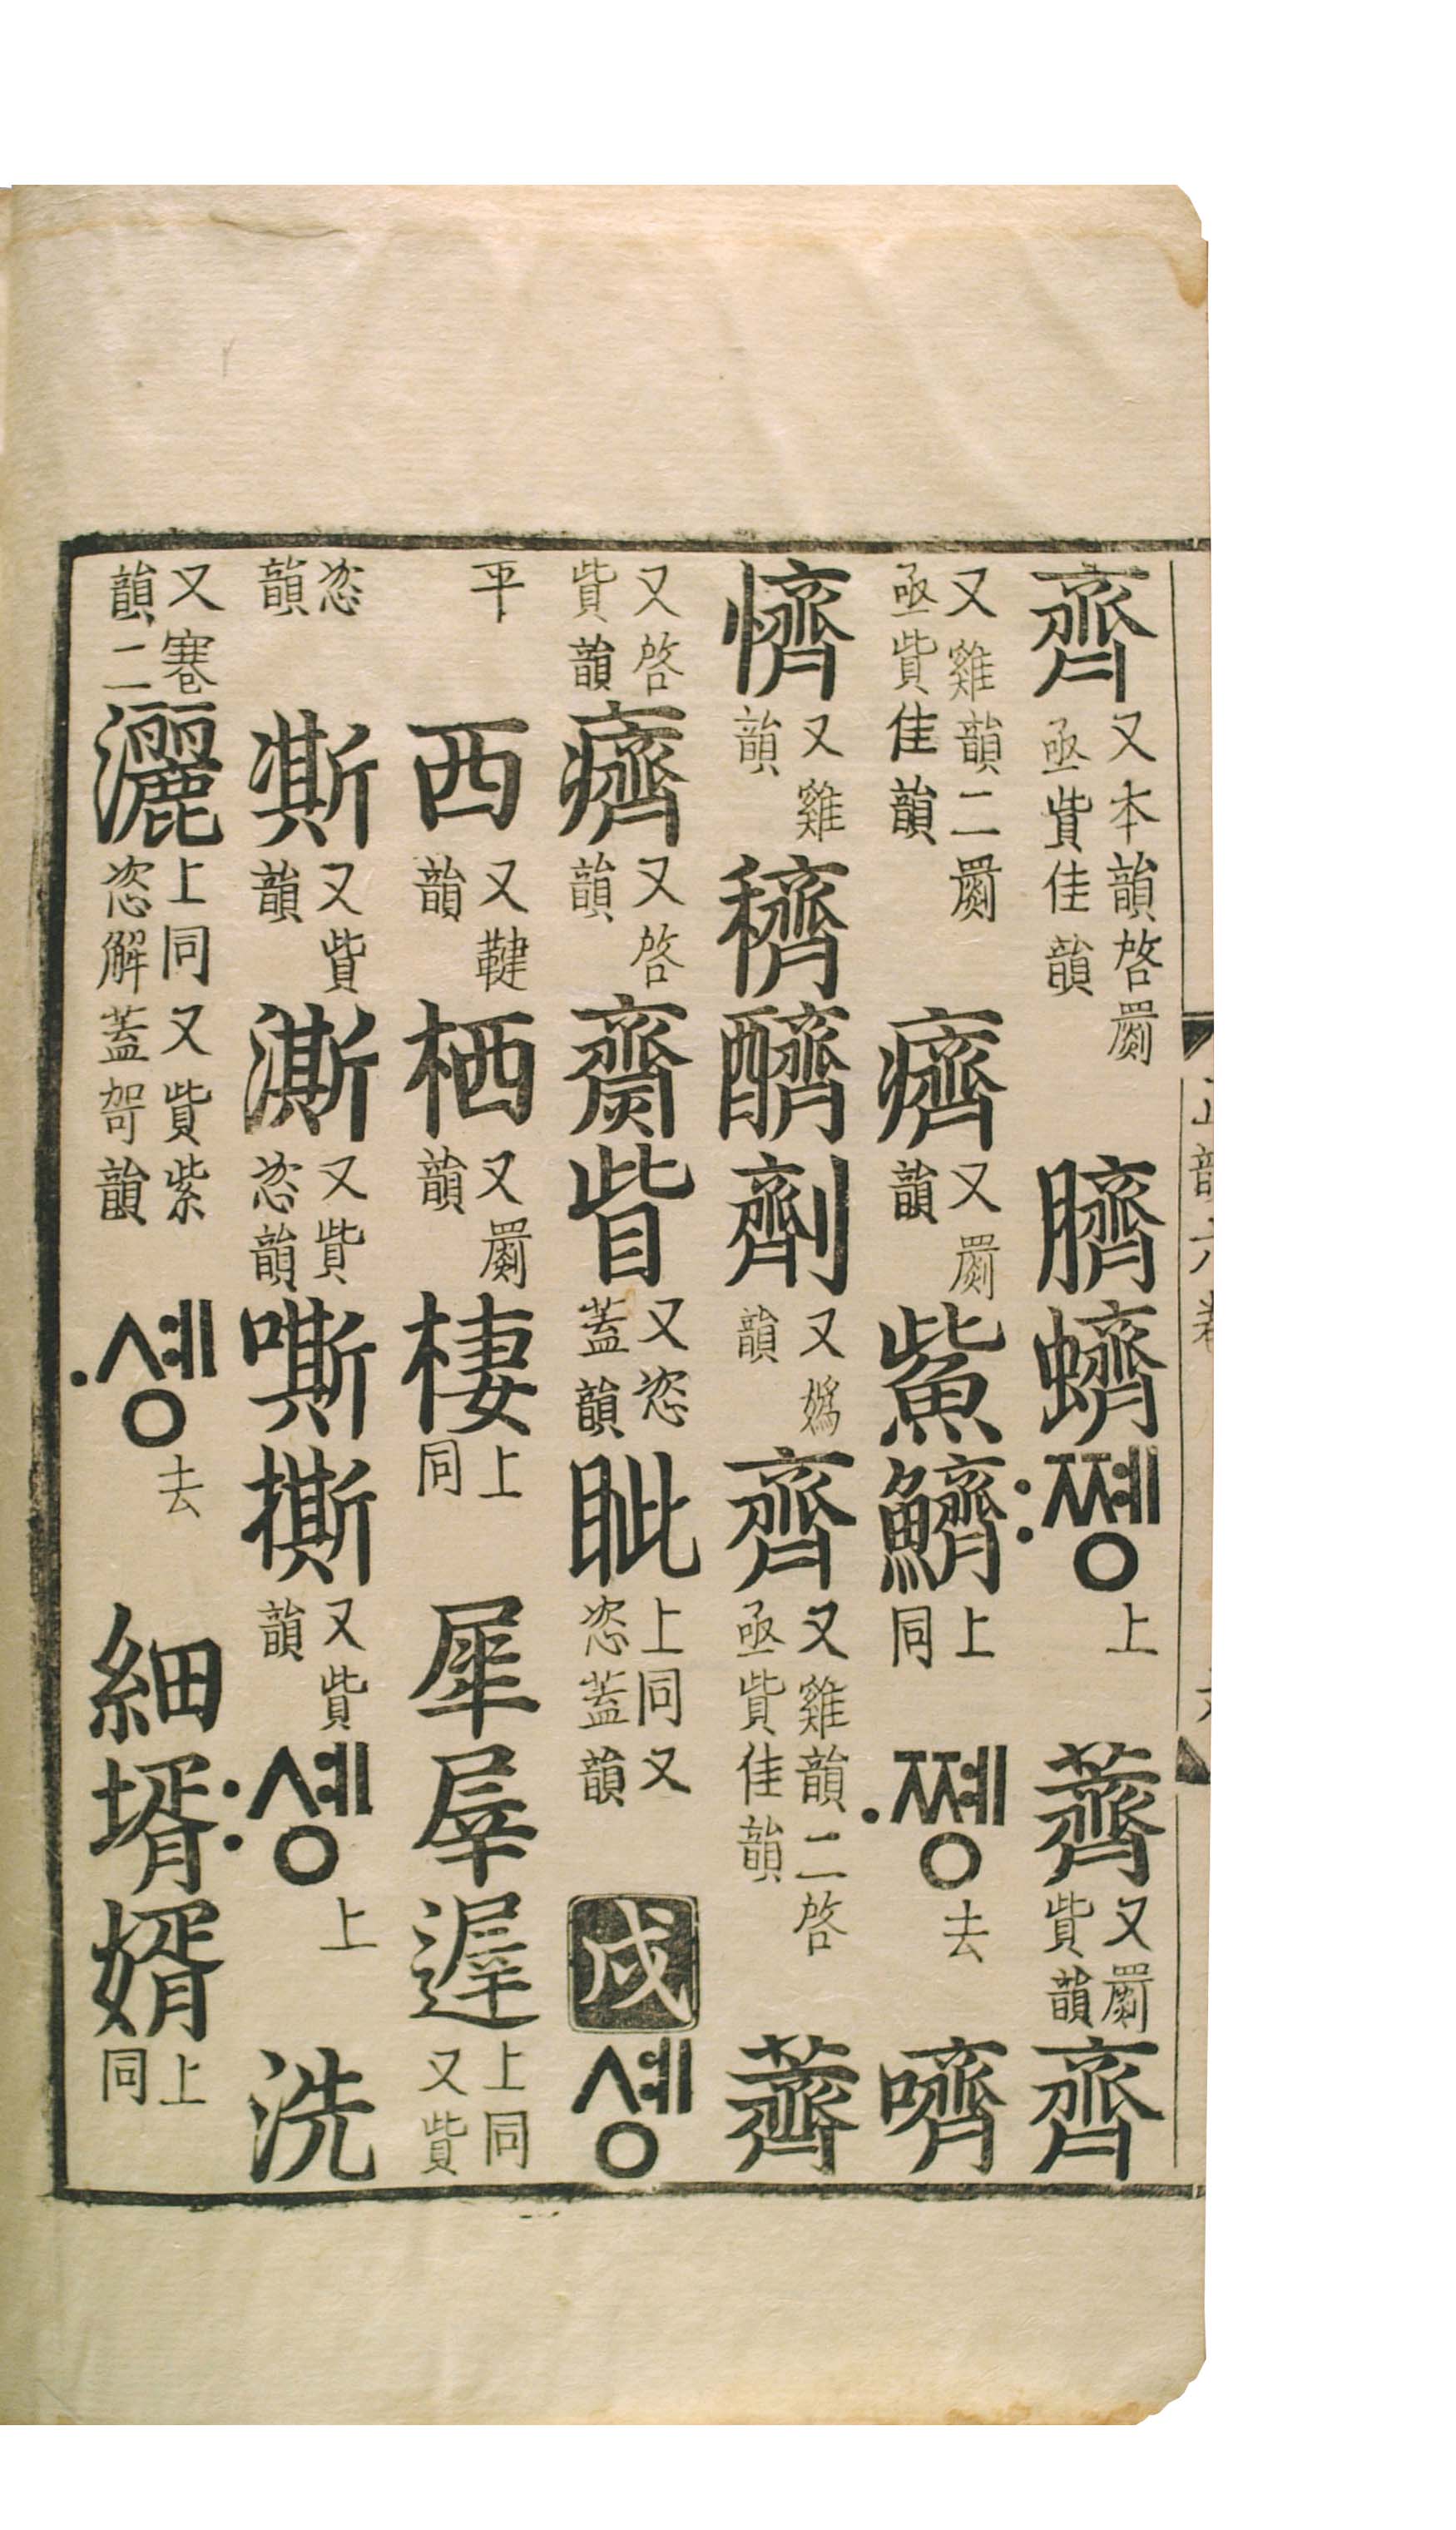 齊又本韻啓罽亟貲佳韻臍蠐：쪵上薺又罽貲韻齊
又雞韻二罽亟貲佳韻癠又罽韻鮆鱭上同·쪵去嚌
懠又雞韻穧醮劑又嬀韻齊又雞韻二啓亟貲佳韻薺
又啓貲韻癠又啓韻齌眥又恣蓋韻眦上同又恣蓋韻戌솅
平西又鞬韻栖又罽韻棲上同犀屖遟上同又貲
恣韻凘又貲韻澌又貲恣韻嘶撕又貲韻：솅上洗
又寋韻二灑上同又貲紫恣解蓋哿韻·솅去細壻婿上同